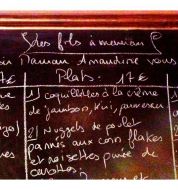 Les fils à maman
Damian Amandine vous
7€ Plats: 17€
1) coquillettes à la crème
de jambon, Kiri, parmesan
2) Nuggets de poulet
pannés aux corn flakes
et noisettes purée de
carottes.
3)